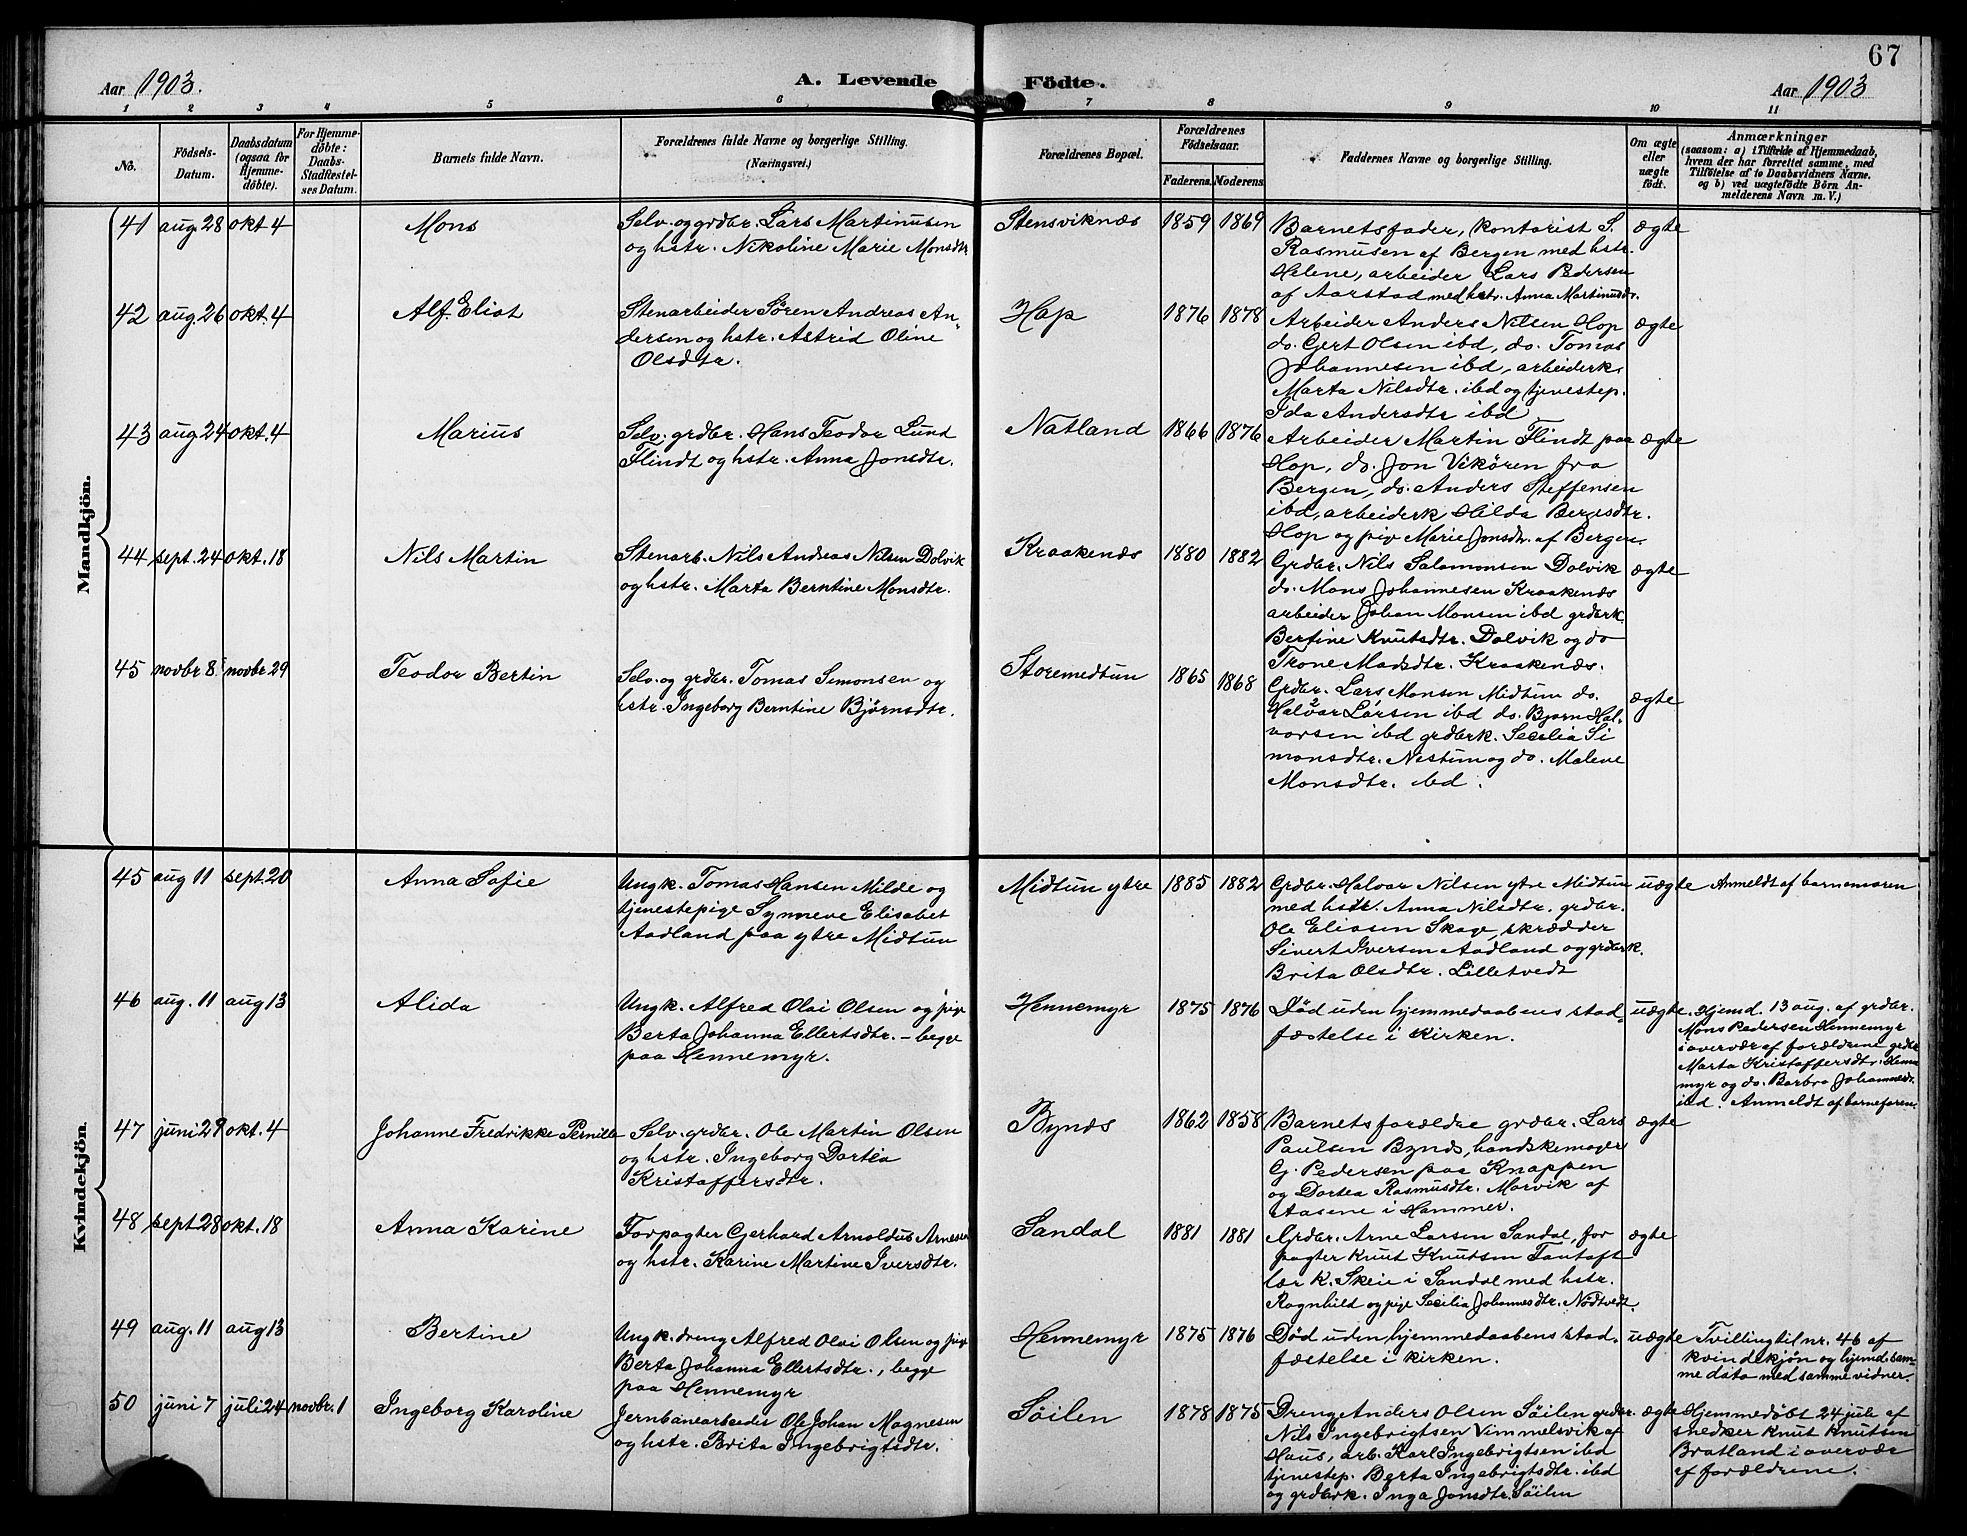 67
Aar 1903.
A. Levende Födte.
Aar 1903
1 2 3 4 5 6 7 8 9 10 11
No.
Födsels-
Datum.
Daabsdatum
(ogsaa for
Hjemme-
döbte).
For Hjemme-
döbte:
Daabs-
Stadfæstel-
ses Datum.
Barnets fulde Navn.
Forældrenes fulde Navne og borgerlige Stilling.
(Næringsvei.)
Forældrenes Bopæl.
Forældrenes
Födselsaar.
Faderens. Moderens.
Faddernes Navne og borgerlige Stilling.
Om ægte
eller
uægte
födt.
Anmærkninger
(saasom: a) i Tilfælde af Hjemmedaab,
hvem der har forrettet samme, med
Tilföielse af to Daabsvidners Navne.
og b) ved uægtefödte Börn An-
melderens Navn m. V.)
Mandkjön.
41 aug. 28 okt. 4 Mons
Selv. og grdbr. Lars Martinusen
og hstr. Nikoline Marie Monsdtr
Stensviknæs 1859 1869
Barnets fader, kontorist S.
Rasmusen af Bergen med hstr.
Helene, arbeider Lars Pedersen
af Aarstad med hstr. Anna Martinusdr.
ægte
42 aug. 26 okt. 4 Alf Eliot
Stenarbeider Sören Andreas An-
dersen og hstr. Astrid Oline
Olsdtr.
Hop 1876 1878
Arbeider Anders Nilsen Hop
do. Gert Olsen ibd, do. Tomas
Johannesen ibd, arbeiderk.
Marta Nilsdtr. ibd og tjenestep.
Ida Andersdtr ibd
ægte
43 aug 24 okt. 4 Marius
Selv. grdbr. Hans Teodor Lund
Flindt og hstr. Anna Jonsdtr.
Natland 1866 1876
Arbeider Martin Flindt paa
Hop, do. Jon Vikören fra
Bergen, do. Anders Steffensen
ibd, arbeiderk Hilda Bergsdtr.
Hop og pige Marie Jonsdr. af Bergen.
ægte
44 sept. 24 okt. 18 Nils Martin
Stenarb. Nils Andreas Nilsen Dolvik
og hstr. Marta Berntine Monsdtr.
Kraakenæs 1880 1882
Grdbr. Nils Salamonsen Dolvik
do. Mons Johannesen Kraakenæs
arbeider Johan Monsen ibd grdbrk.
Bertine Knutsdtr. Dolvik og do
Trone Madsdtr. Kraakenæs.
ægte
45 novbr 8 novbr. 29 Teodor Bertin
Selv. og grdbr. Tomas Simonsen og
hstr. Ingeborg Berntine Björnsdtr.
Storemidtun 1865 1868
Grdbr. Lars Monsen Midtun do.
Halvar Larsen ibd do. Bjørn Hal-
vorsen ibd grdbrk. Secilia Si
monsdtr. Nestun og do. Malene
Monsdtr. ibd.
ægte
Kvindekjön.
45 aug 11 sept. 20 Anna Sofie
Ungk. Tomas Hansen Milde og
tjenestepige Synneve Elisabet
Aadland paa ytre Midtun
Midtun ytre 1885 1882
Grdbr. Halvar Nilsen ytre Midtun
med hstr. Anna Nilsdtr. grdbr.
Ole Eliasen Skage, skrædder
Sivert Iversen Aadland og grdbrk.
Brita Olsdtr. Lilletvedt
uægte
Anmeldt af barnemoren
46 aug. 11 aug 13 Alida
Ungk. Alfred Olai Olsen og pige
Berta Johanna Ellertsdtr. – begge
paa Hennemyr.
Hennemyr 1875 1876
Död uden hjemmedaabens stad-
fæstelse i kirken.
uægte.
Hjemd. 13 aug. af grdbr.
Mons Pedersen Hennemyr
i overvær af forældrene grdbr
Marta Kristaffersdtr. Henne
myr og do. Barbro Johannesdr.
ibd. Anmeldt af barnefaren.
47 juni 29 okt. 4 Johanne Fredrikke Pernille
Selv. grdbr. Ole Martin Olsen
og hstr. Ingeborg Dortea
Kristaffersdtr.
Bynæs 1862 1858
Barnets forældre grdbr. Lars
Paulsen Bynæs, handskemager
G. Pedersen paa Knappen
og Dortea Rasmusdtr. Morvik af
Aasene i Hammer.
ægte
48 sept 28 okt. 18 Anna Karine
Forpagter Gerhard Arnoldus Arnesen
og hstr. Karine Martine Iversdtr.
Sandal 1881 1881
Grdbr. Arne Larsen Sandal, for
pagter Knut Knudsen Tantaft
lær K. Skeie i Sandal med hstr.
Ragnhild og pige Secilia Johannesdtr. Nödtvedt.
ægte
49 aug. 11 aug 13 Bertine
Ungk. dreng Alfred Olai Olsen og pige
Berta Johanna Ellertsdtr., begge
paa Hennemyr
Hennemyr 1875 1876
Död uden hjemmedaabens stad-
fæstelse i kirken.
uægte
Tvilling til nr. 46 af
kvindekjön og hjemd. sam-
me dato med samme vidner.
50 juni 7 juli 24 novbr. 1 Ingeborg Karoline
Jernbanearbeider Ole Johan Magnesen
og hstr. Brita Ingebrigtsdtr.
Söilen 1878 1875
Dreng Anders Olsen Söilen grdbr.
Nils Ingebrigtsen Vimmelsvik af
Haus, arb. Karl Ingebrigtsen ibd
tjenestep. Berta Ingebrigtsdtr. ibd
og grdbrk. Inga Jonsdtr. Söilen
ægte
Hjemmedöbt 24 juli af
snedker Knut Knutsen
Bratland i overvær
af forældrene.